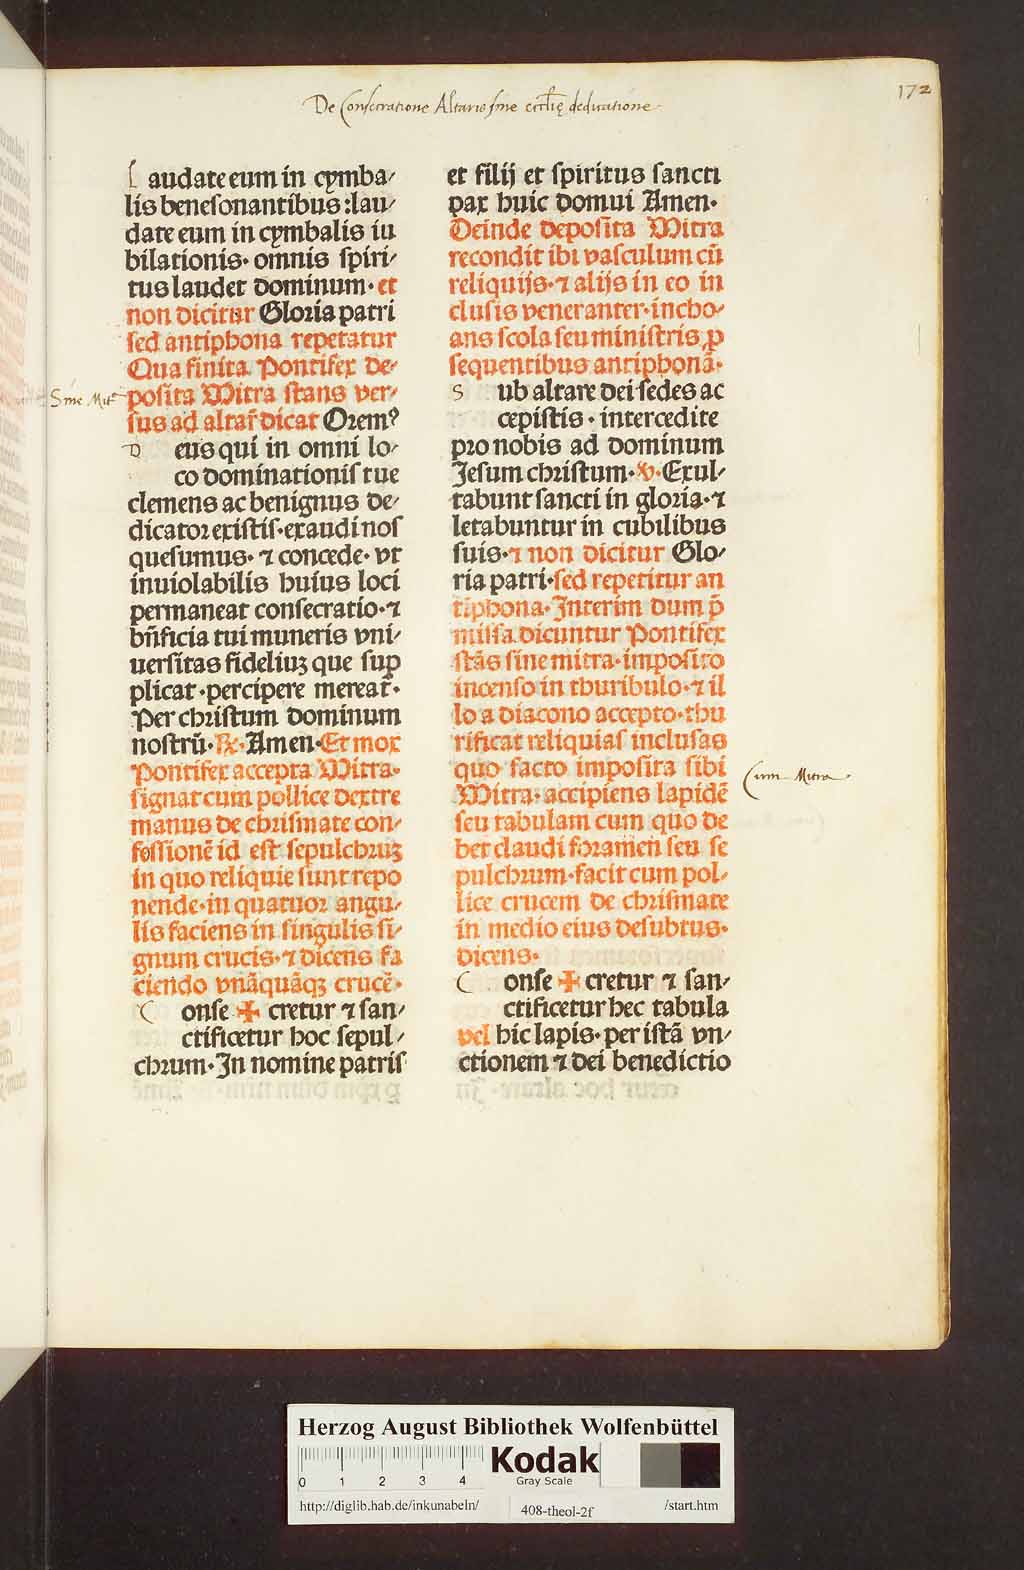 172
De Consecratione Altaris sine eccl̄ię dedicatione
Laudate eum in cymba/
lis benesonantibus: lau/
date eum in cymbalis iu
bilationis· omnis spiri/
tus laudet dominum· et
non dicitur Gloria patri
sed antiphona repetatur
Qua finita Pontifex de/
posita Mitra stans ver/
sus ad altar̄ dicat Oremꝰ
Deus qui in omni lo/
co dominationis tue
clemens ac benignus de/
dicator existis· exaudi nos
quesumus· ⁊ concede· vt
inuiolabilis huius loci
permaneat consecratio· ⁊
bn̄ficia tui muneris vni/
uersitas fideliuʒ que sup
plicat· percipere mereat̄·
Per christum dominum
nostrū· ℟· Amen· Et mox
Pontifex accepta Mitra·
signat cum pollice dextre
manus de chrismate con/
fessionē id est sepulchruʒ
in quo reliquie sunt repo
nende· in quatuor angu/
lis faciens in singulis si/
gnum crucis· ⁊ dicens fa
ciendo vnāquāqʒ crucē·
Conse ✠ cretur ⁊ san/
ctificetur hoc sepul/
chrum· In nomine patris
Sine Mit̄
et filij et spiritus sancti
pax huic domui Amen·
Deinde deposita Mitra
recondit ibi vasculum cū
reliquijs· ⁊ alijs in eo in
clusis veneranter· incho/
ans scola seu ministris ꝓ
sequentibus antiphonā·
Sub altare dei sedes ac
cepistis· intercedite
pro nobis ad dominum
Jesum christum· ℣· Exul/
tabunt sancti in gloria· ⁊
letabuntur in cubilibus
suis· ⁊ non dicitur Glo/
ria patri· sed repetitur an
tiphona· Interim dum p̄
missa dicuntur Pontifex
stās sine mitra· imposito
incenso in thuribulo· ⁊ il
lo a diacono accepto· thu
rificat reliquias inclusas
quo facto imposita sibi
Mitra· accipiens lapidē
seu tabulam cum quo de
bet claudi foramen seu se
pulchrum· facit cum pol/
lice crucem de chrismate
in medio eius desubtus·
dicens·
Conse ✠ cretur ⁊ san/
ctificetur hec tabula
vel hic lapis· per istā vn/
ctionem ⁊ dei benedictio
Cum Mitra
Herzog August Bibliothek Wolfenbüttel
0 1 2 3 4
Kodak
Gray Scale
http://diglib.hab.de/inkunabeln/
408-theol-2f
/start.htm